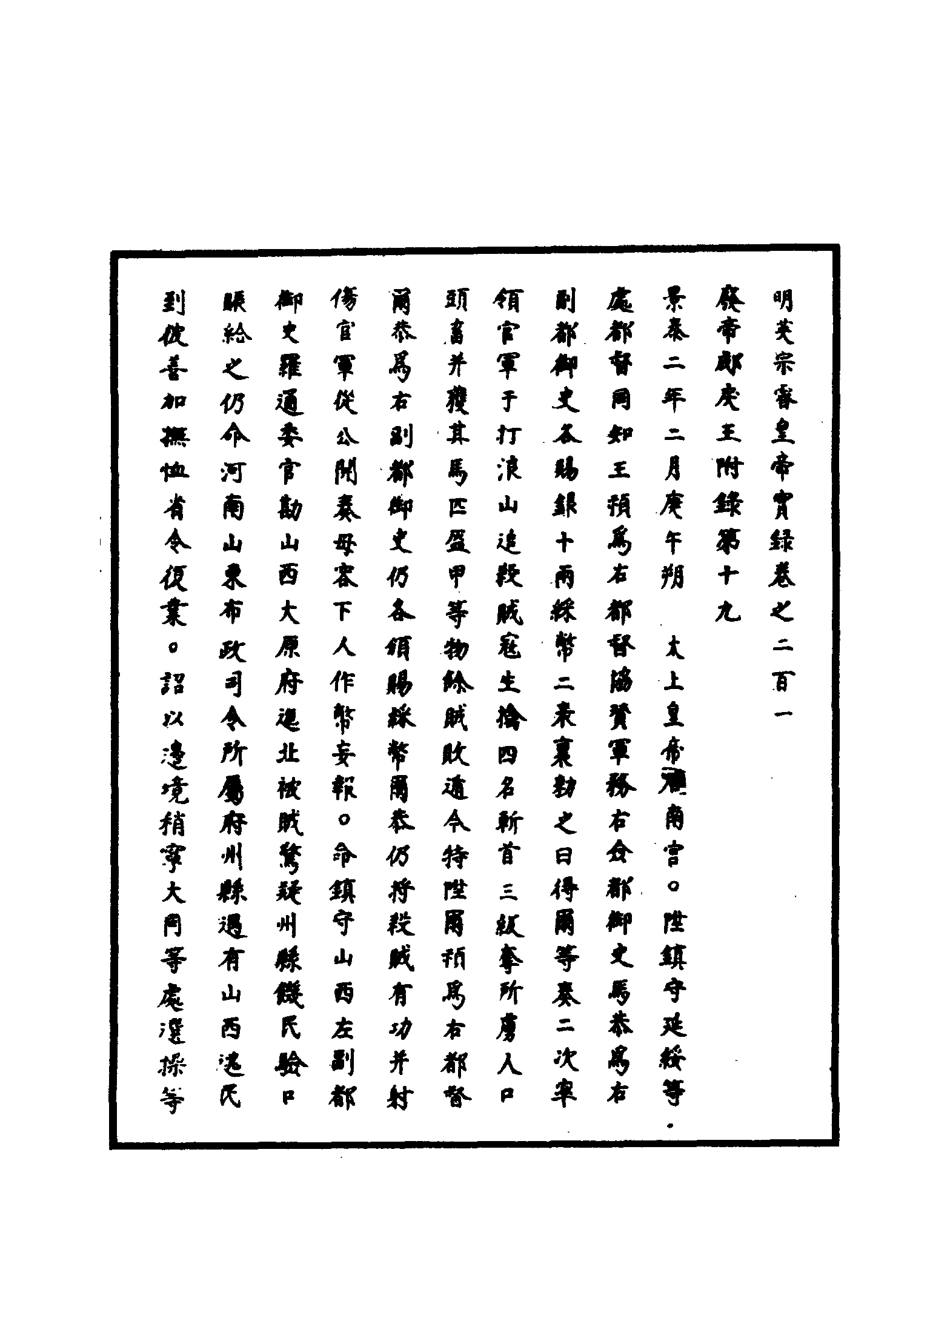 明英宗睿皇帝實錄卷之二百一
廢帝郕戾王附錄第十九
景泰二年二月庚午朔　太上皇帝南宮○陞鎮守延綏等
處都督同知王禎為右都督協贊軍務右僉都御史馬恭為右
副都御史各賜銀十兩綵幣二表裏勑之曰得爾等奏二次率
領官軍于打浪山追殺賊寇生擒四名斬首三級奪所虜人口
頭畜并獲其馬匹盔甲等物餘賊敗遁今特陞爾禎為右都督
爾恭為右副都御史仍各領賜綵幣爾恭仍將殺賊有功并射
傷官軍從公開奏毋容下人作弊妄報○命鎮守山西左副都
御史羅通委官勘山西大原府迤北被賊驚疑州縣饑民驗口
賑給之仍命河南山東布政司令所屬府州縣遇有山西逃民
到彼善加撫恤省令復業○詔以邊境稍寧大同等處選操等